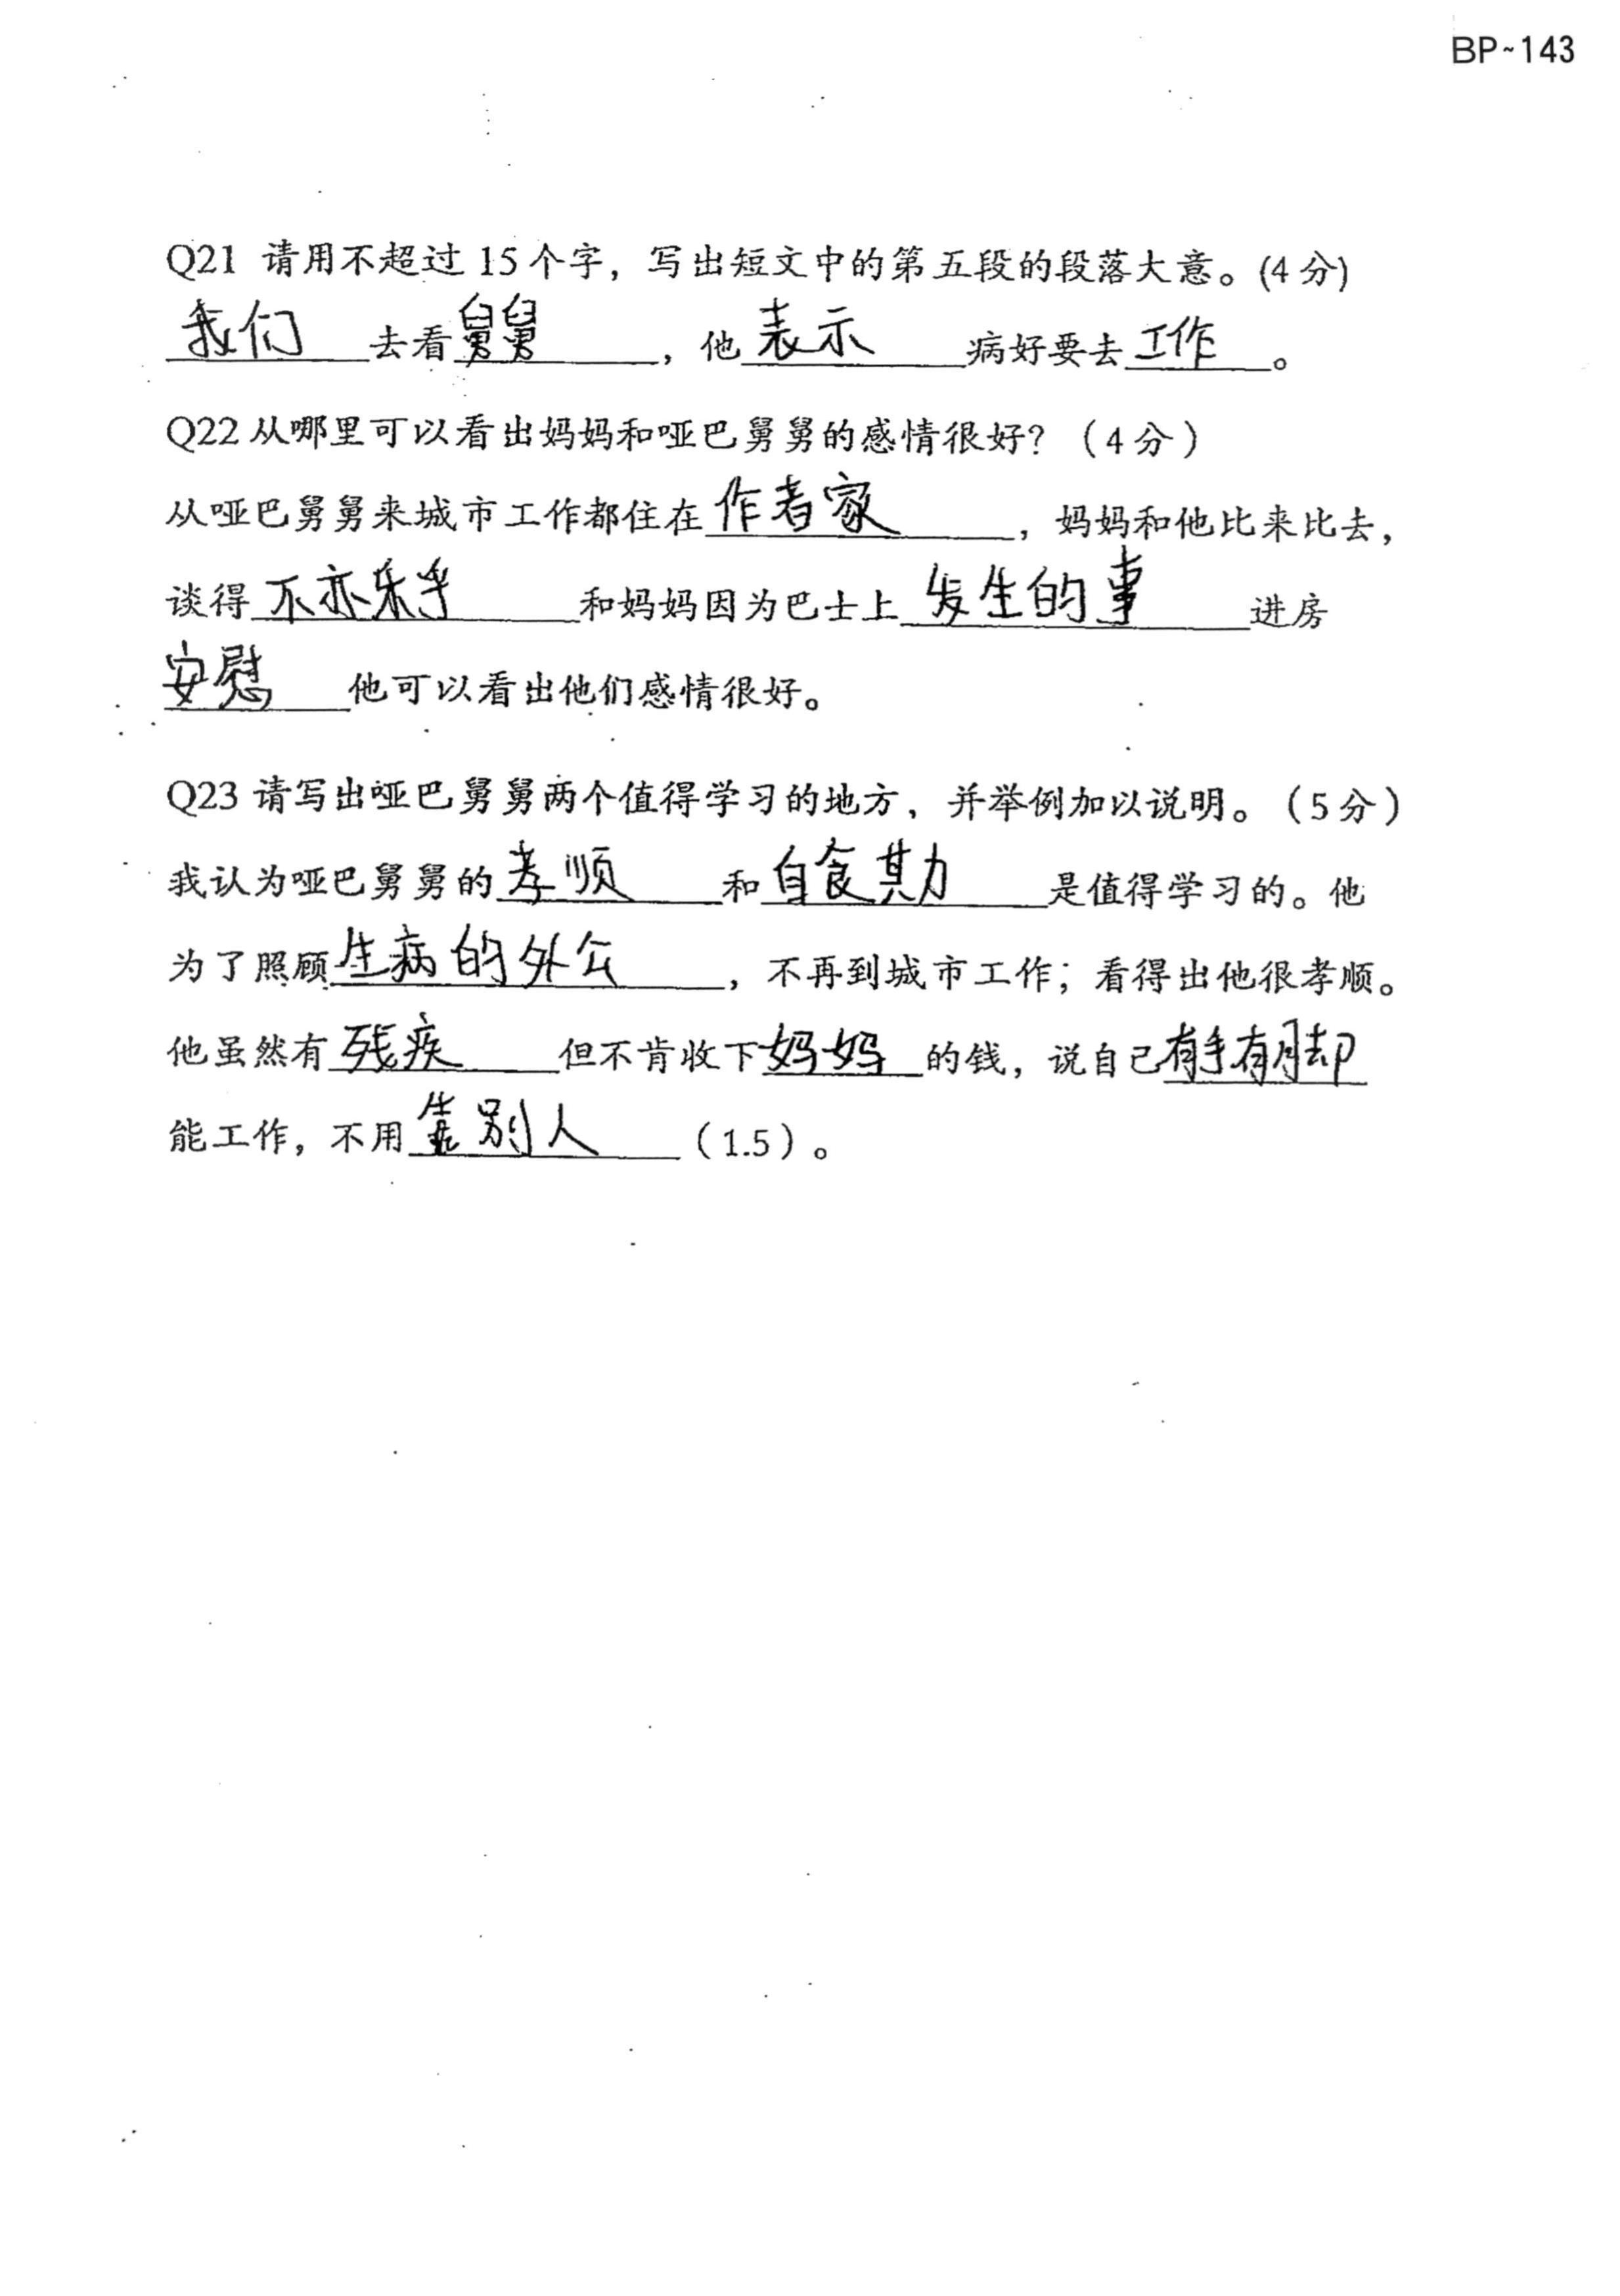 BP~143
Q21 请用不超过 15 个字，写出短文中的第五段的段落大意。(4 分)
我们去看舅舅，他表示病好要去工作。
Q22 从哪里可以看出妈妈和哑巴舅舅的感情很好？（4 分）
从哑巴舅舅来城市工作都住在作者家，妈妈和他比来比去，
谈得不亦乐乎和妈妈因为巴士上发生的事进房
安慰他可以看出他们感情很好。
Q23 请写出哑巴舅舅两个值得学习的地方，并举例加以说明。（5 分）
我认为哑巴舅舅的孝顺和自食其力是值得学习的。他
为了照顾生病的外公，不再到城市工作；看得出他很孝顺。
他虽然有残疾但不肯收下妈妈的钱，说自己有手有脚
能工作，不用靠别人（1.5）。